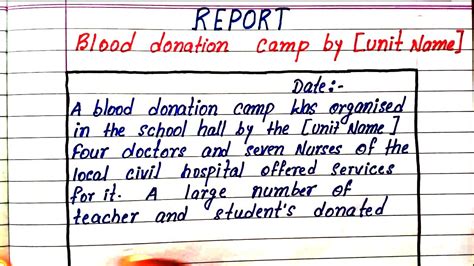 REPORT
Blood donation camp by [unit Name]
Date:-
A blood donation camp was organised
in the school hall by the [unit Name]
Four doctors and seven Nurses of the
local civil hospital offered services
for it. A large number of
teacher and student's donated